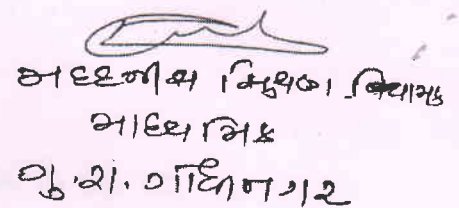 મદદનીશ શિક્ષણ નિયામક
માધ્યમિક
ગુ.રા. ગાંધીનગર